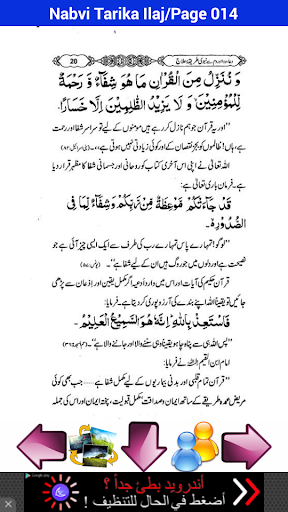 Nabvi Tarika Ilaj/Page 014
20
وَنُنَزِّلُ مِنَ الْقُرْاٰنِ مَا هُوَ شِفَآءٌ وَّ رَحْمَةٌ
لِّلْمُؤْمِنِيْنَ وَ لَا يَزِيْدُ الظّٰلِمِيْنَ اِلَّا خَسَارًا.
”اور یہ قرآن جو ہم نازل کر رہے ہیں مومنوں کے لیے تو سراسر شفا اور رحمت
ہے، ہاں! ظالموں کو بجز نقصان کے اور کوئی زیادتی نہیں ہوتی ہے۔“
اللہ تعالیٰ نے اپنی اس آخری کتاب کو روحانی اور جسمانی شفا کا مظہر قرار دیا
ہے۔ فرمان باری تعالیٰ ہے:
قَدْ جَآءَتْكُمْ مَّوْعِظَةٌ مِّنْ رَّبِّكُمْ وَشِفَآءٌ لِّمَا فِى
الصُّدُوْرِ.
”لوگو! تمہارے پاس تمہارے رب کی طرف سے ایک ایسی چیز آئی ہے جو
نصیحت ہے اور دلوں میں جو روگ ہیں ان کے لیے شفا ہے۔“
قرآن حکیم کی آیات اور اس میں وارد ادعیہ اگر مکمل یقین اور اذعان سے پڑھی
جائیں تو یقیناً اللہ اپنے بندے کی آرزو پوری کردیتا ہے۔ فرمایا:
فَاسْتَعِذْ بِاللّٰهِ اِنَّهٗ هُوَ السَّمِيْعُ الْعَلِيْمُ.
”پس اللہ ہی سے پناہ چاہو یقیناً وہی سننے والا اور جاننے والا ہے۔“
امام ابن القیم نے فرمایا:
”قرآن تمام قلبی اور بدنی بیماریوں کے لیے مکمل شفا ہے ...... جب بھی کوئی
مریض عمدہ طریقے کے ساتھ ایمان و صداقت، مکمل قبولیت، پختہ ایمان اور اس کی جملہ
أندرويد بطئ جداً ؟
أضغط في الحال للتنظيف !